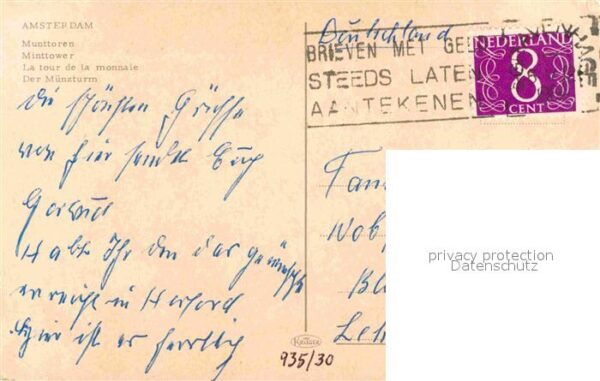 AMSTERDAM
Munttoren
Minttower
La tour de la monnaie
Der Münzturm
Deutschland
BRIEVEN MET GELD
STEEDS LATEN
AANTEKENEN
NEDERLAND
8
CENT
Die schönsten Grüße
von hier sendet Euch
Habt Ihr den das
erreicht in
Hier ist es herrlich
Fam
Leh
privacy protection
Datenschutz
Krüger
935/30